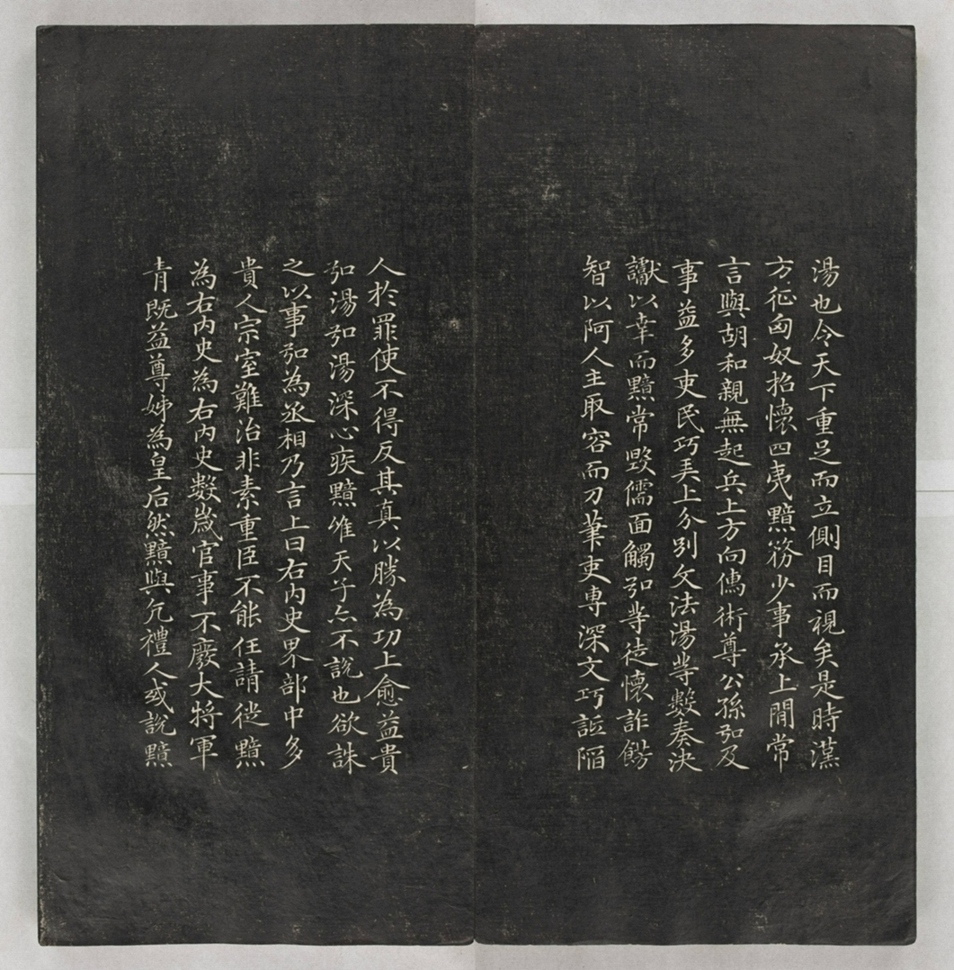 湯也令天下重足而立側目而視矣是時漢
方征匈奴招懷四夷黯務少事承上間常
言與胡和親無起兵上方向儒術尊公孫弘及
事益多吏民巧弄上分別文法湯等數奏決
讞以幸而黯常毀儒面觸弘等徒懷詐飾
智以阿人主取容而刀筆吏專深文巧詆陷
人於罪使不得反其真以勝為功上愈益貴
弘湯弘湯深心疾黯唯天子亦不說也欲誅
之以事弘為丞相乃言上曰右內史界部中多
貴人宗室難治非素重臣不能任請徙黯
為右內史為右內史數歲官事不廢大將軍
青既益尊姊為皇后然黯與亢禮人或說黯